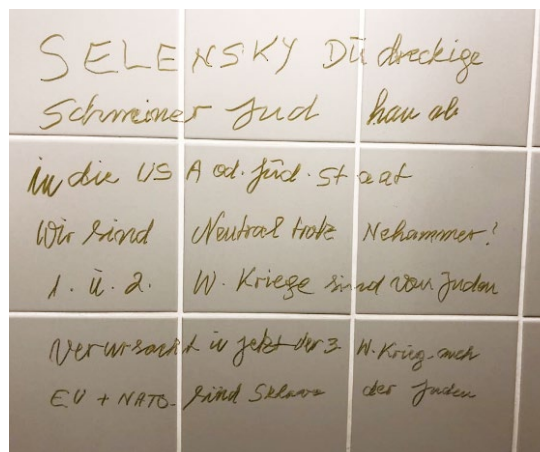 SELENSKY Dü dreckige
Schweiner Jud hau ab
in die USA od. Jüd. Staat
Wir sind Neutral trotz Nehammer!
1. ü. 2. W. Kriege sind von Juden
Verursacht ü jetzt der 3 W. Krieg auch
EU + NATO sind Sklaven der Juden